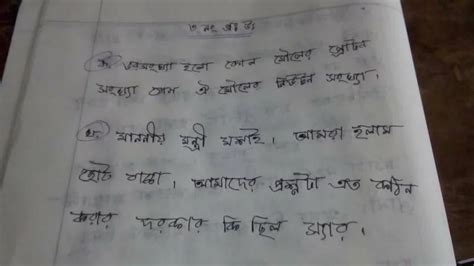 ৩ নং প্রঃ উঃ
ক) ভরসংখ্যা হলো কোন মৌলের প্রোটন
সংখ্যা কোন ঐ মৌলের নিউট্রন সংখ্যা।
খ) মাননীয় মন্ত্রী মশাই। আমরা হলাম
ছোট বাচ্চা। আমাদের প্রশ্নটা এত কঠিন
করার দরকার কি ছিল স্যার।